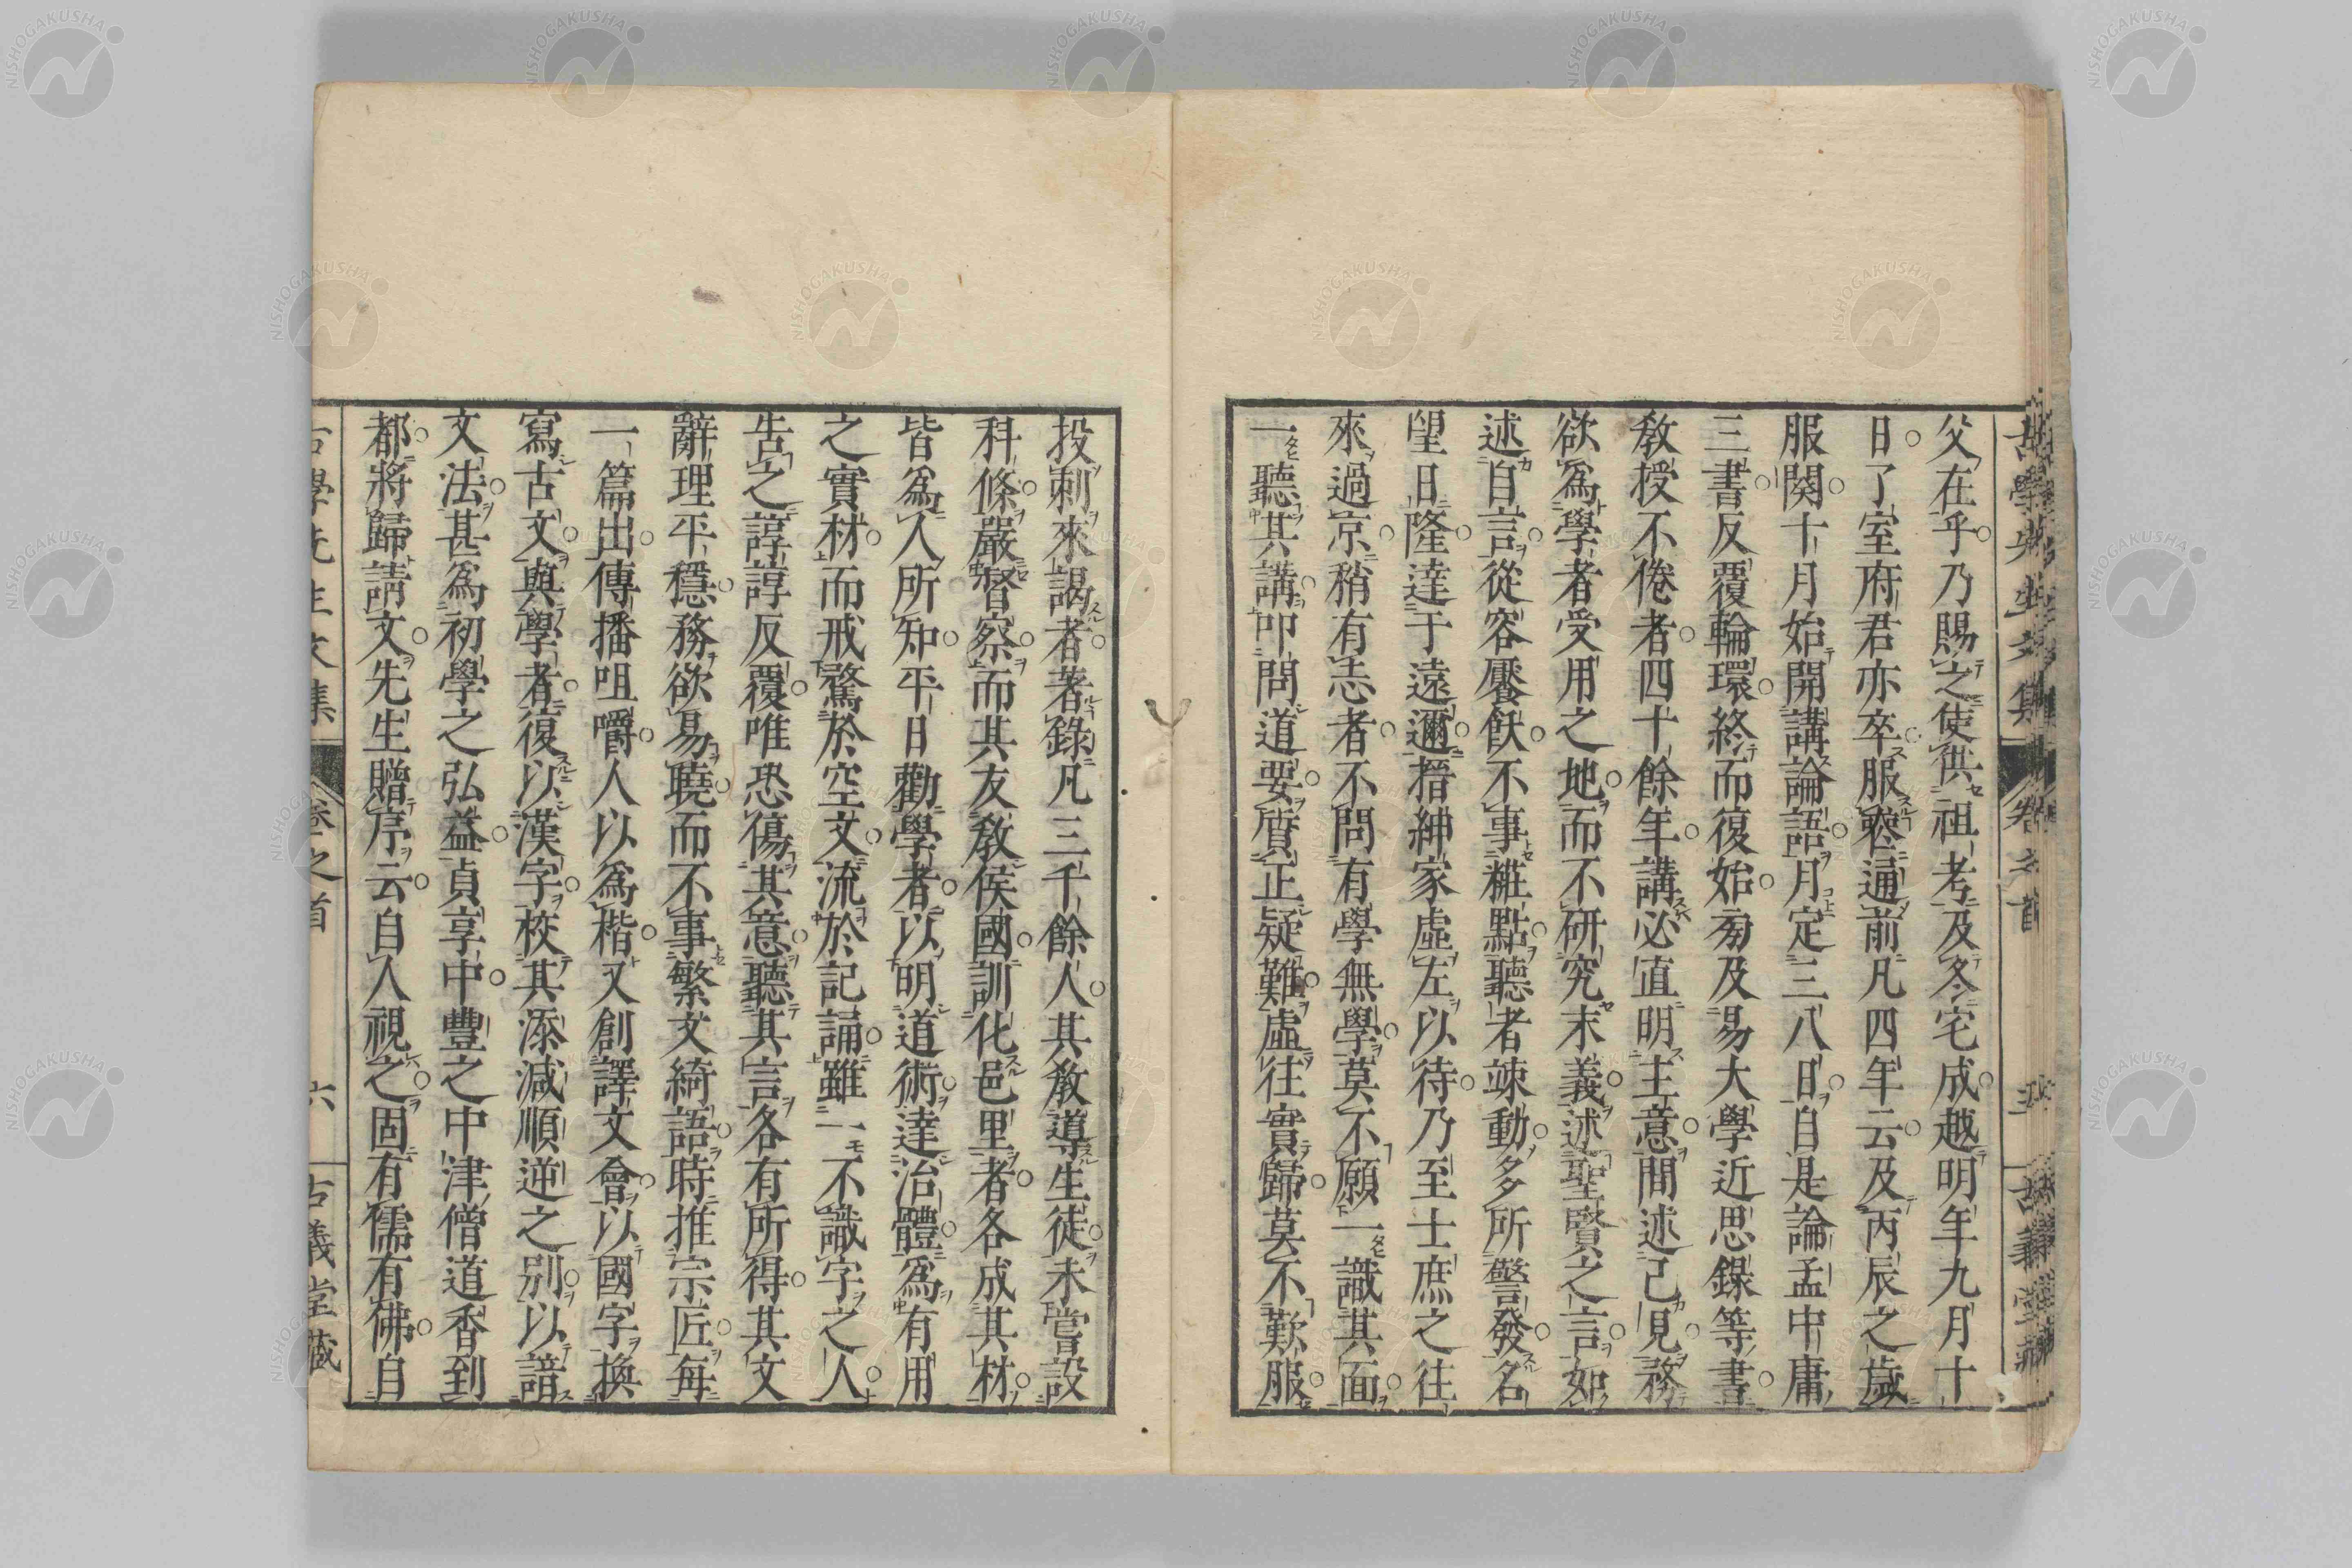 父在乎乃賜之使供祖考及冬宅成越明年九月十
日了室府君亦卒服喪通前凡四年云及丙辰之歲
服闋十月始開講論語月定三八日自是論孟中庸
三書反覆輪環終而復始旁及易大學近思錄等書
教授不倦者四十餘年講必直明主意間述己見務
欲為學者受用之地而不研究末義述聖賢之言如
述自言從容饜飫不事粧點聽者竦動多所警發名
望日隆達于遠邇搢紳家虛左以待乃至士庶之往
來過京稍有志者不問有學無學莫不願一識其面
一聽其講叩問道要質正疑難虛往實歸莫不歎服
投刺來謁者著錄凡三千餘人其教導生徒未嘗設
科條嚴督察而其友教侯國訓化邑里者各成其材
皆為人所知平日勸學者以明道術達治體為有用
之實材而戒騖於空文流於記誦雖一不識字之人
告之諄諄反覆唯恐傷其意聽其言各有所得其文
辭理平穩務欲易曉而不事繁文綺語時推宗匠每
一篇出傳播咀嚼人以為楷又創譯文會以國字換
寫古文與學者復以漢字校其添減順逆之別以諳
文法甚為初學之弘益貞享中豐之中津僧道香到
都將歸請文先生贈序云自人視之固有儒有佛自
古學先生文集 卷之首 六 古義堂藏